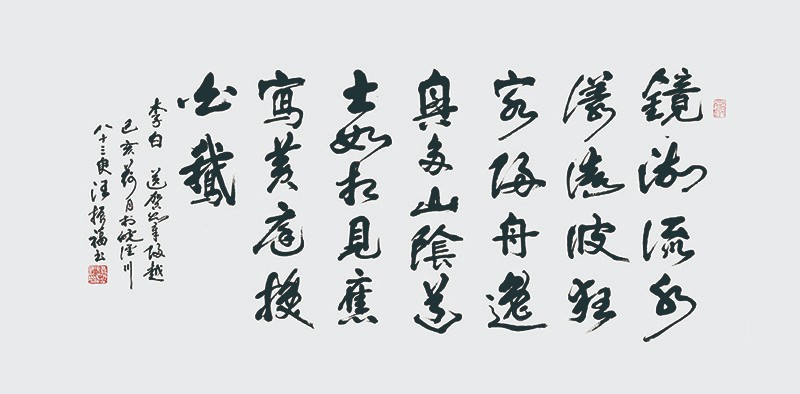 鏡湖流水
漾清波狂
客歸舟逸
興多山陰道
士如相見應
寫黃庭換
白鵝
李白 送賀歸越
己亥荷月於皖涇川
八十三叟汪振福書